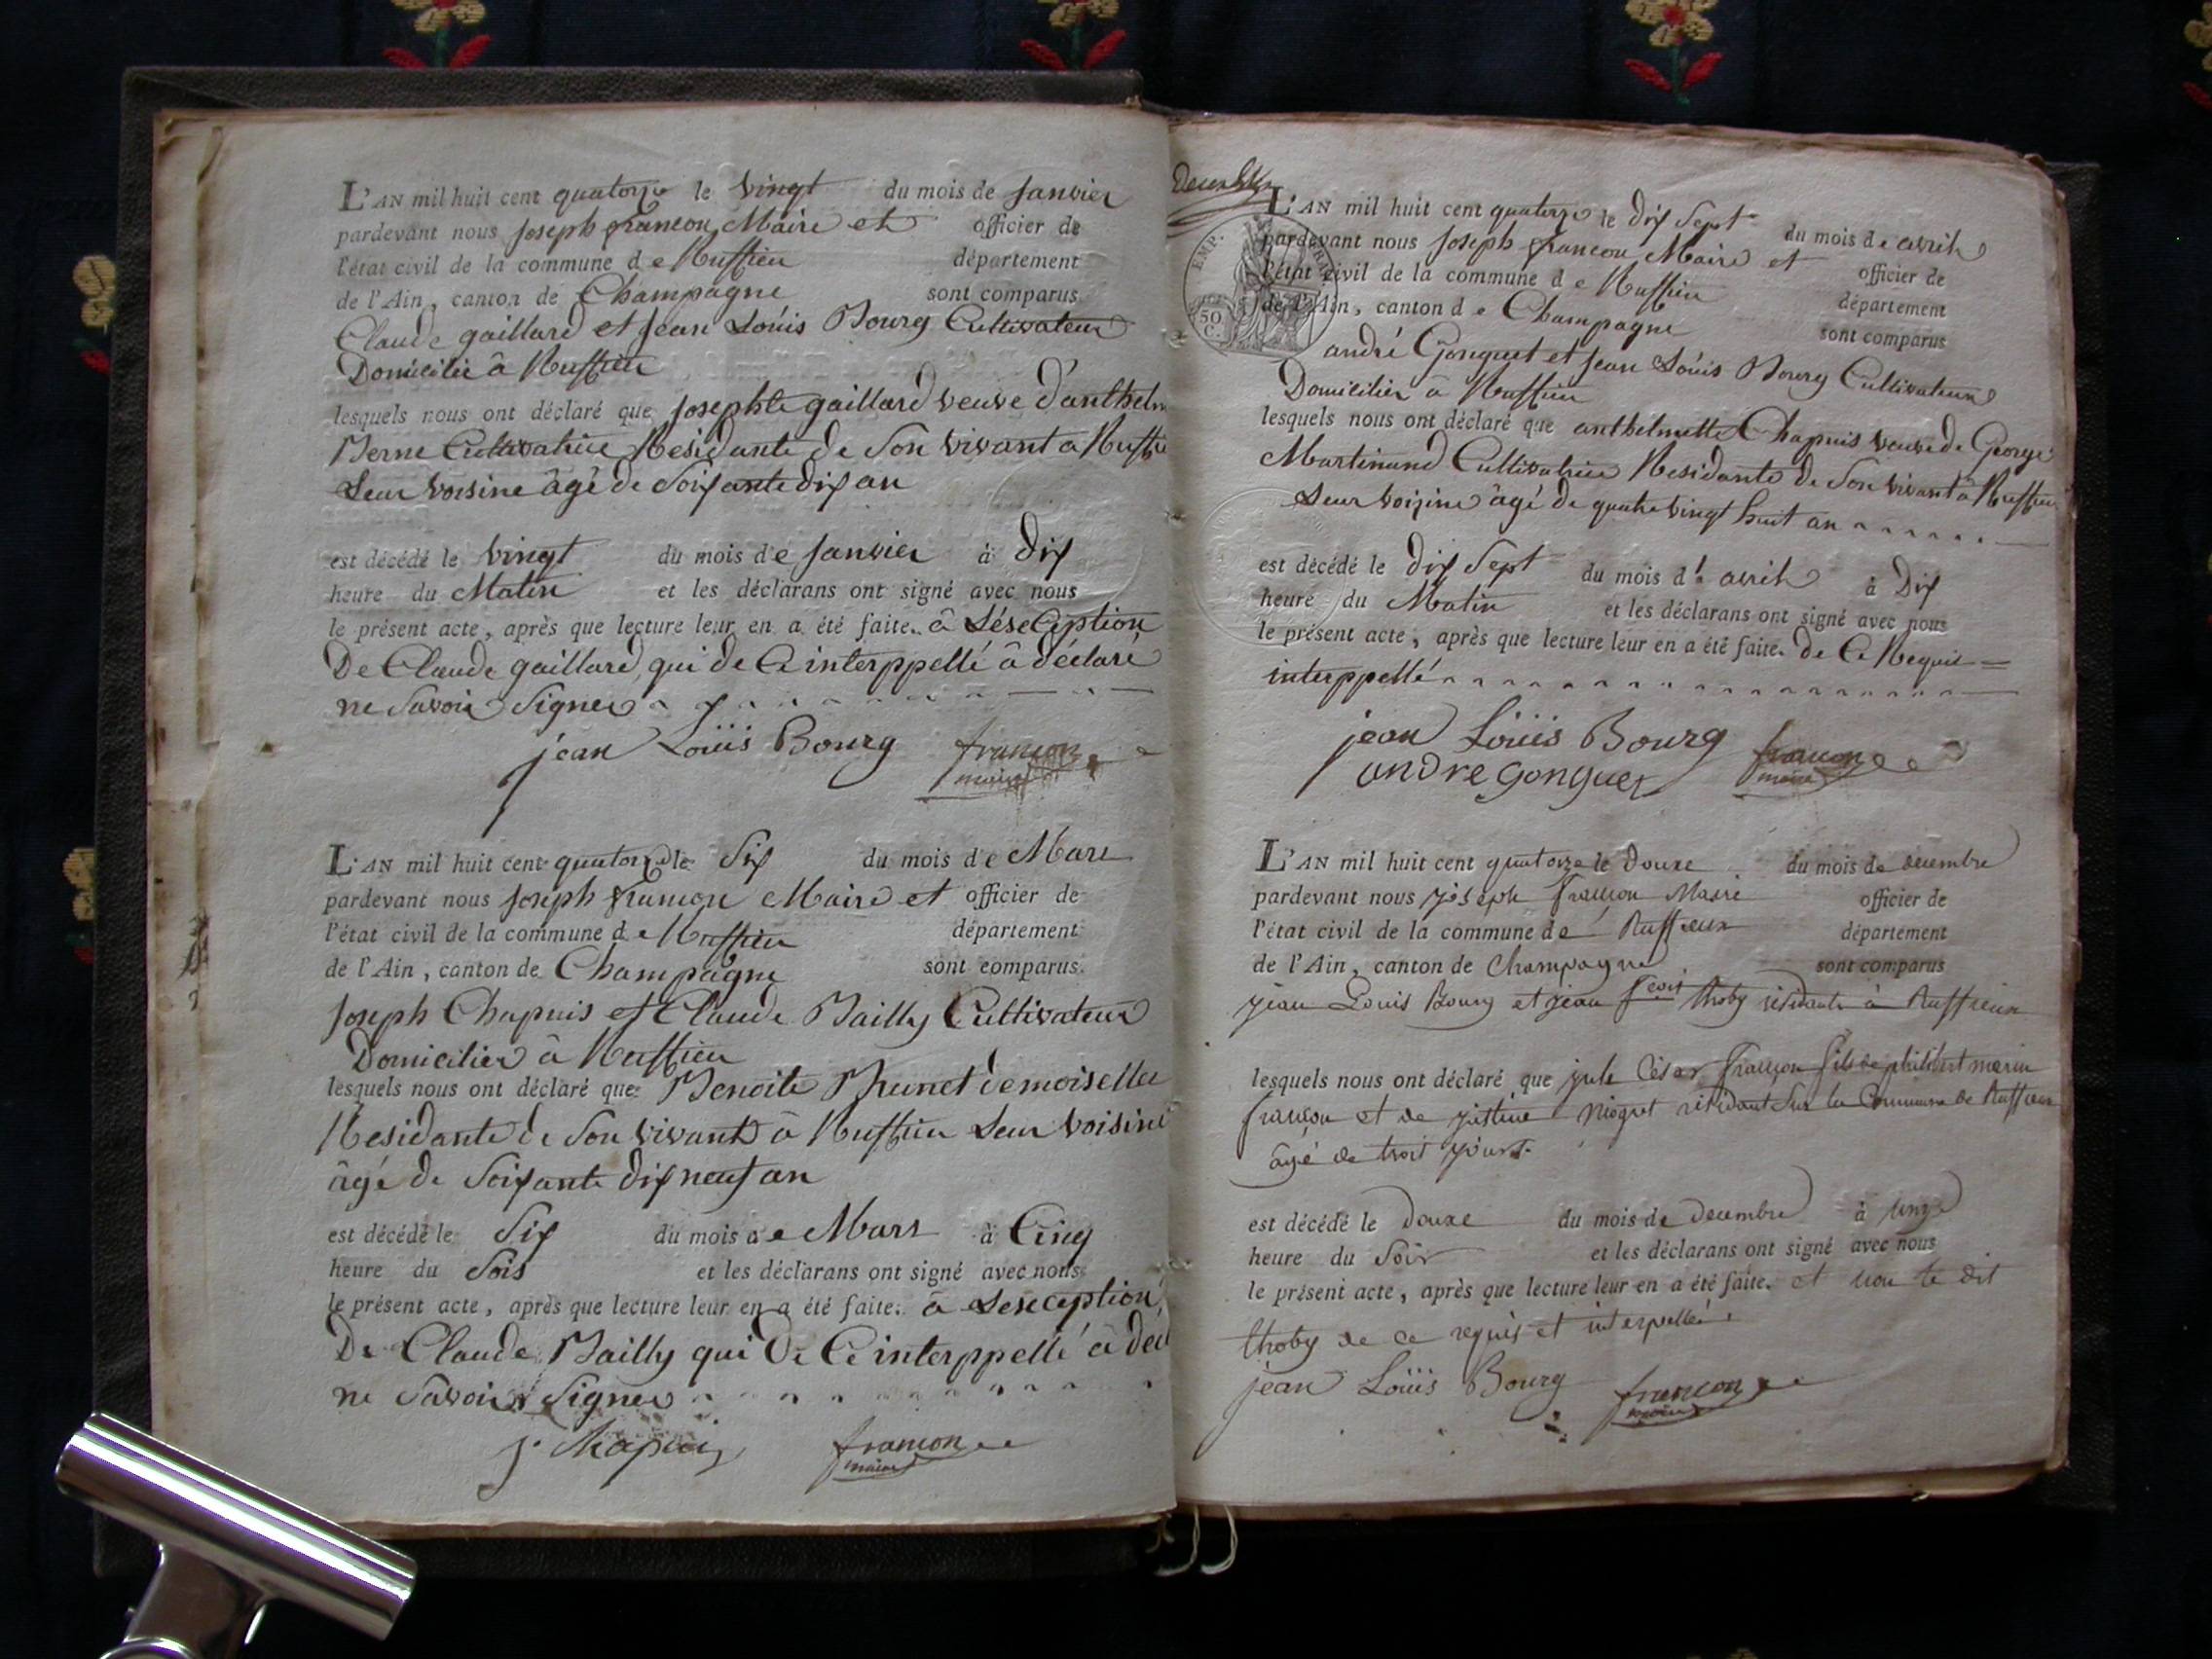 L'AN mil huit cent quatorze le vingt du mois de janvier
pardevant nous joseph francon Maire et officier de
l'état civil de la commune de Ruffieu département
de l'Ain, canton de Champagne sont comparus
Claude gaillard et jean Loüis Bourg Cultivateur
Domicilié â Ruffieu
lesquels nous ont déclaré que josephte gaillard veuve d'anthelm
Berne Cultivatrice Residante de Son vivant a Ruffieu
Leur voisine âgé de Soixante dix an
est décédé le vingt du mois de janvier à dix
heure du Matin et les déclarans ont signé avec nous
le présent acte, après que lecture leur en a été faite. â Léseception
De Claude gaillard qui de Ce interppellé â déclaré
ne Savoir Signer
jean Loüis Bourg francon
maire
L'AN mil huit cent quatorze le Six du mois de Mars
pardevant nous joseph francon Maire et officier de
l'état civil de la commune de Ruffieu département
de l'Ain, canton de Champagne sont comparus
joseph Chapuis et Claude Bailly Cultivateur
Domicilier â Ruffieu
lesquels nous ont déclaré que Benoite Brunet demoiselle
Residante de Son vivant â Ruffieu Leur voisine
âgé de Soixante dix neuf an
est décédé le Six du mois de Mars à Cinq
heure du Soir et les déclarans ont signé avec nous
le présent acte, après que lecture leur en a été faite. â Leseception
De Claude Bailly qui De Ce interppellé â décl
ne Savoir Signer
j. Chapuis francon
maire
L'AN mil huit cent quatorze le dix Sept du mois de avril
pardevant nous joseph francon Maire et officier de
l'état civil de la commune de Ruffieu département
de l'Ain, canton de Champagne sont comparus
EMP.
50
C.
andré Gonguet et jean Loüis Bourg Cultivateur
Domicilier a Ruffieu
lesquels nous ont déclaré que anthelmette Chapuis veuve de George
Martinand Cultivatrice Residante de Son vivant â Ruffieu
Leur voizine âgé de quatre vingt huit an
est décédé le dix Sept du mois d'avril à Dix
heure du Matin et les déclarans ont signé avec nous
le présent acte, après que lecture leur en a été faite. de Ce Requis
interppellé
jean Loüis Bourg francon
andre gonguet maire
L'AN mil huit cent quatorze le douxe du mois de decembre
pardevant nous joseph françon Maire officier de
l'état civil de la commune de Ruffieux département
de l'Ain, canton de Champagne sont comparus
jean Louis Bourg et jean fçois thoby residants à Ruffieux
lesquels nous ont déclaré que jule César françon fils de philibert marin
françon et de justine niogret residant Sur la Commune de Ruffieux
âgé de troit jours
est décédé le douxe du mois de decembre à unze
heure du Soir et les déclarans ont signé avec nous
le présent acte, après que lecture leur en a été faite. et non le dit
thoby de ce requis et interpellé
jean Loüis Bourg francon
maire